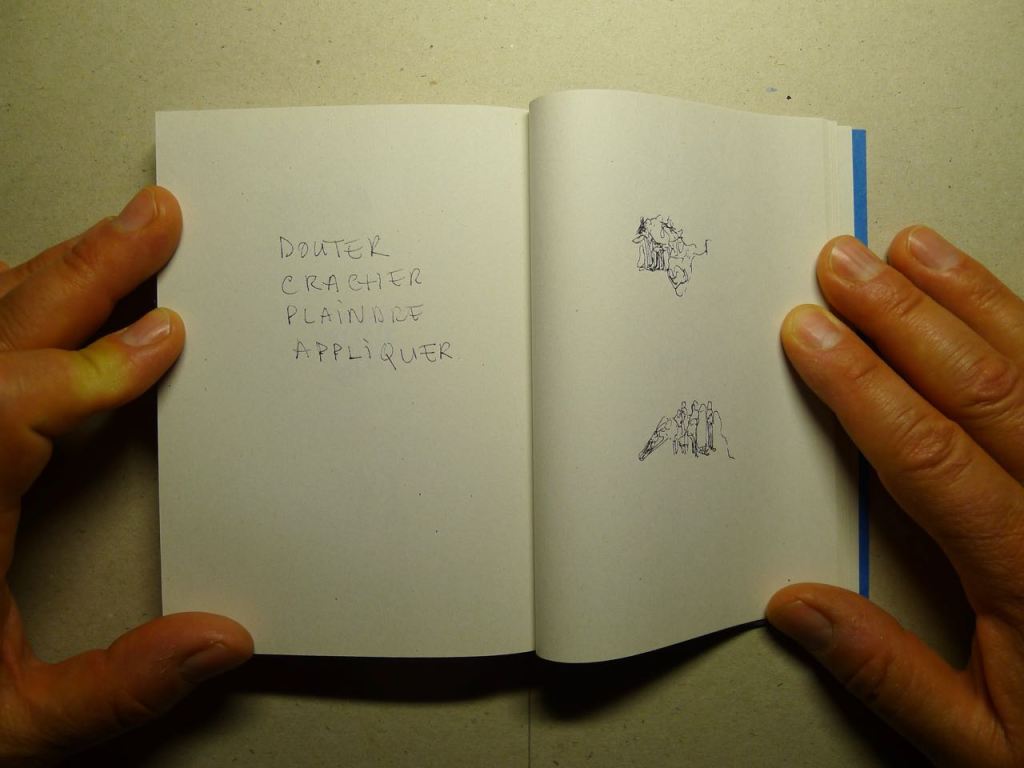 DOUTER
CRACHER
PLAiNDRE
APPLiQUER